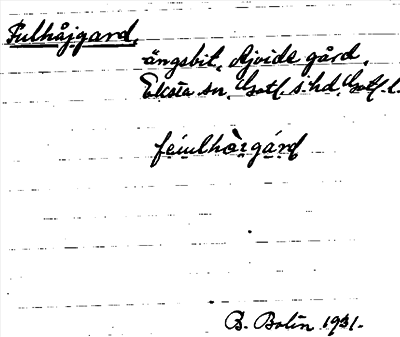 Fulhåjgard,
ängsbit, Ajvide gård,
Eksta sn, Gotl. s. hd, Gotl. l.
feiulhàrgárd
B. Bolin 1931.